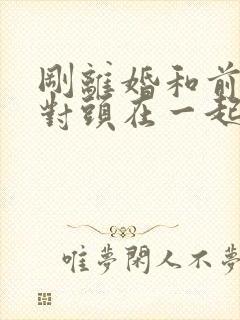 剛離婚和前
對頭在一起
唯夢閑人不夢